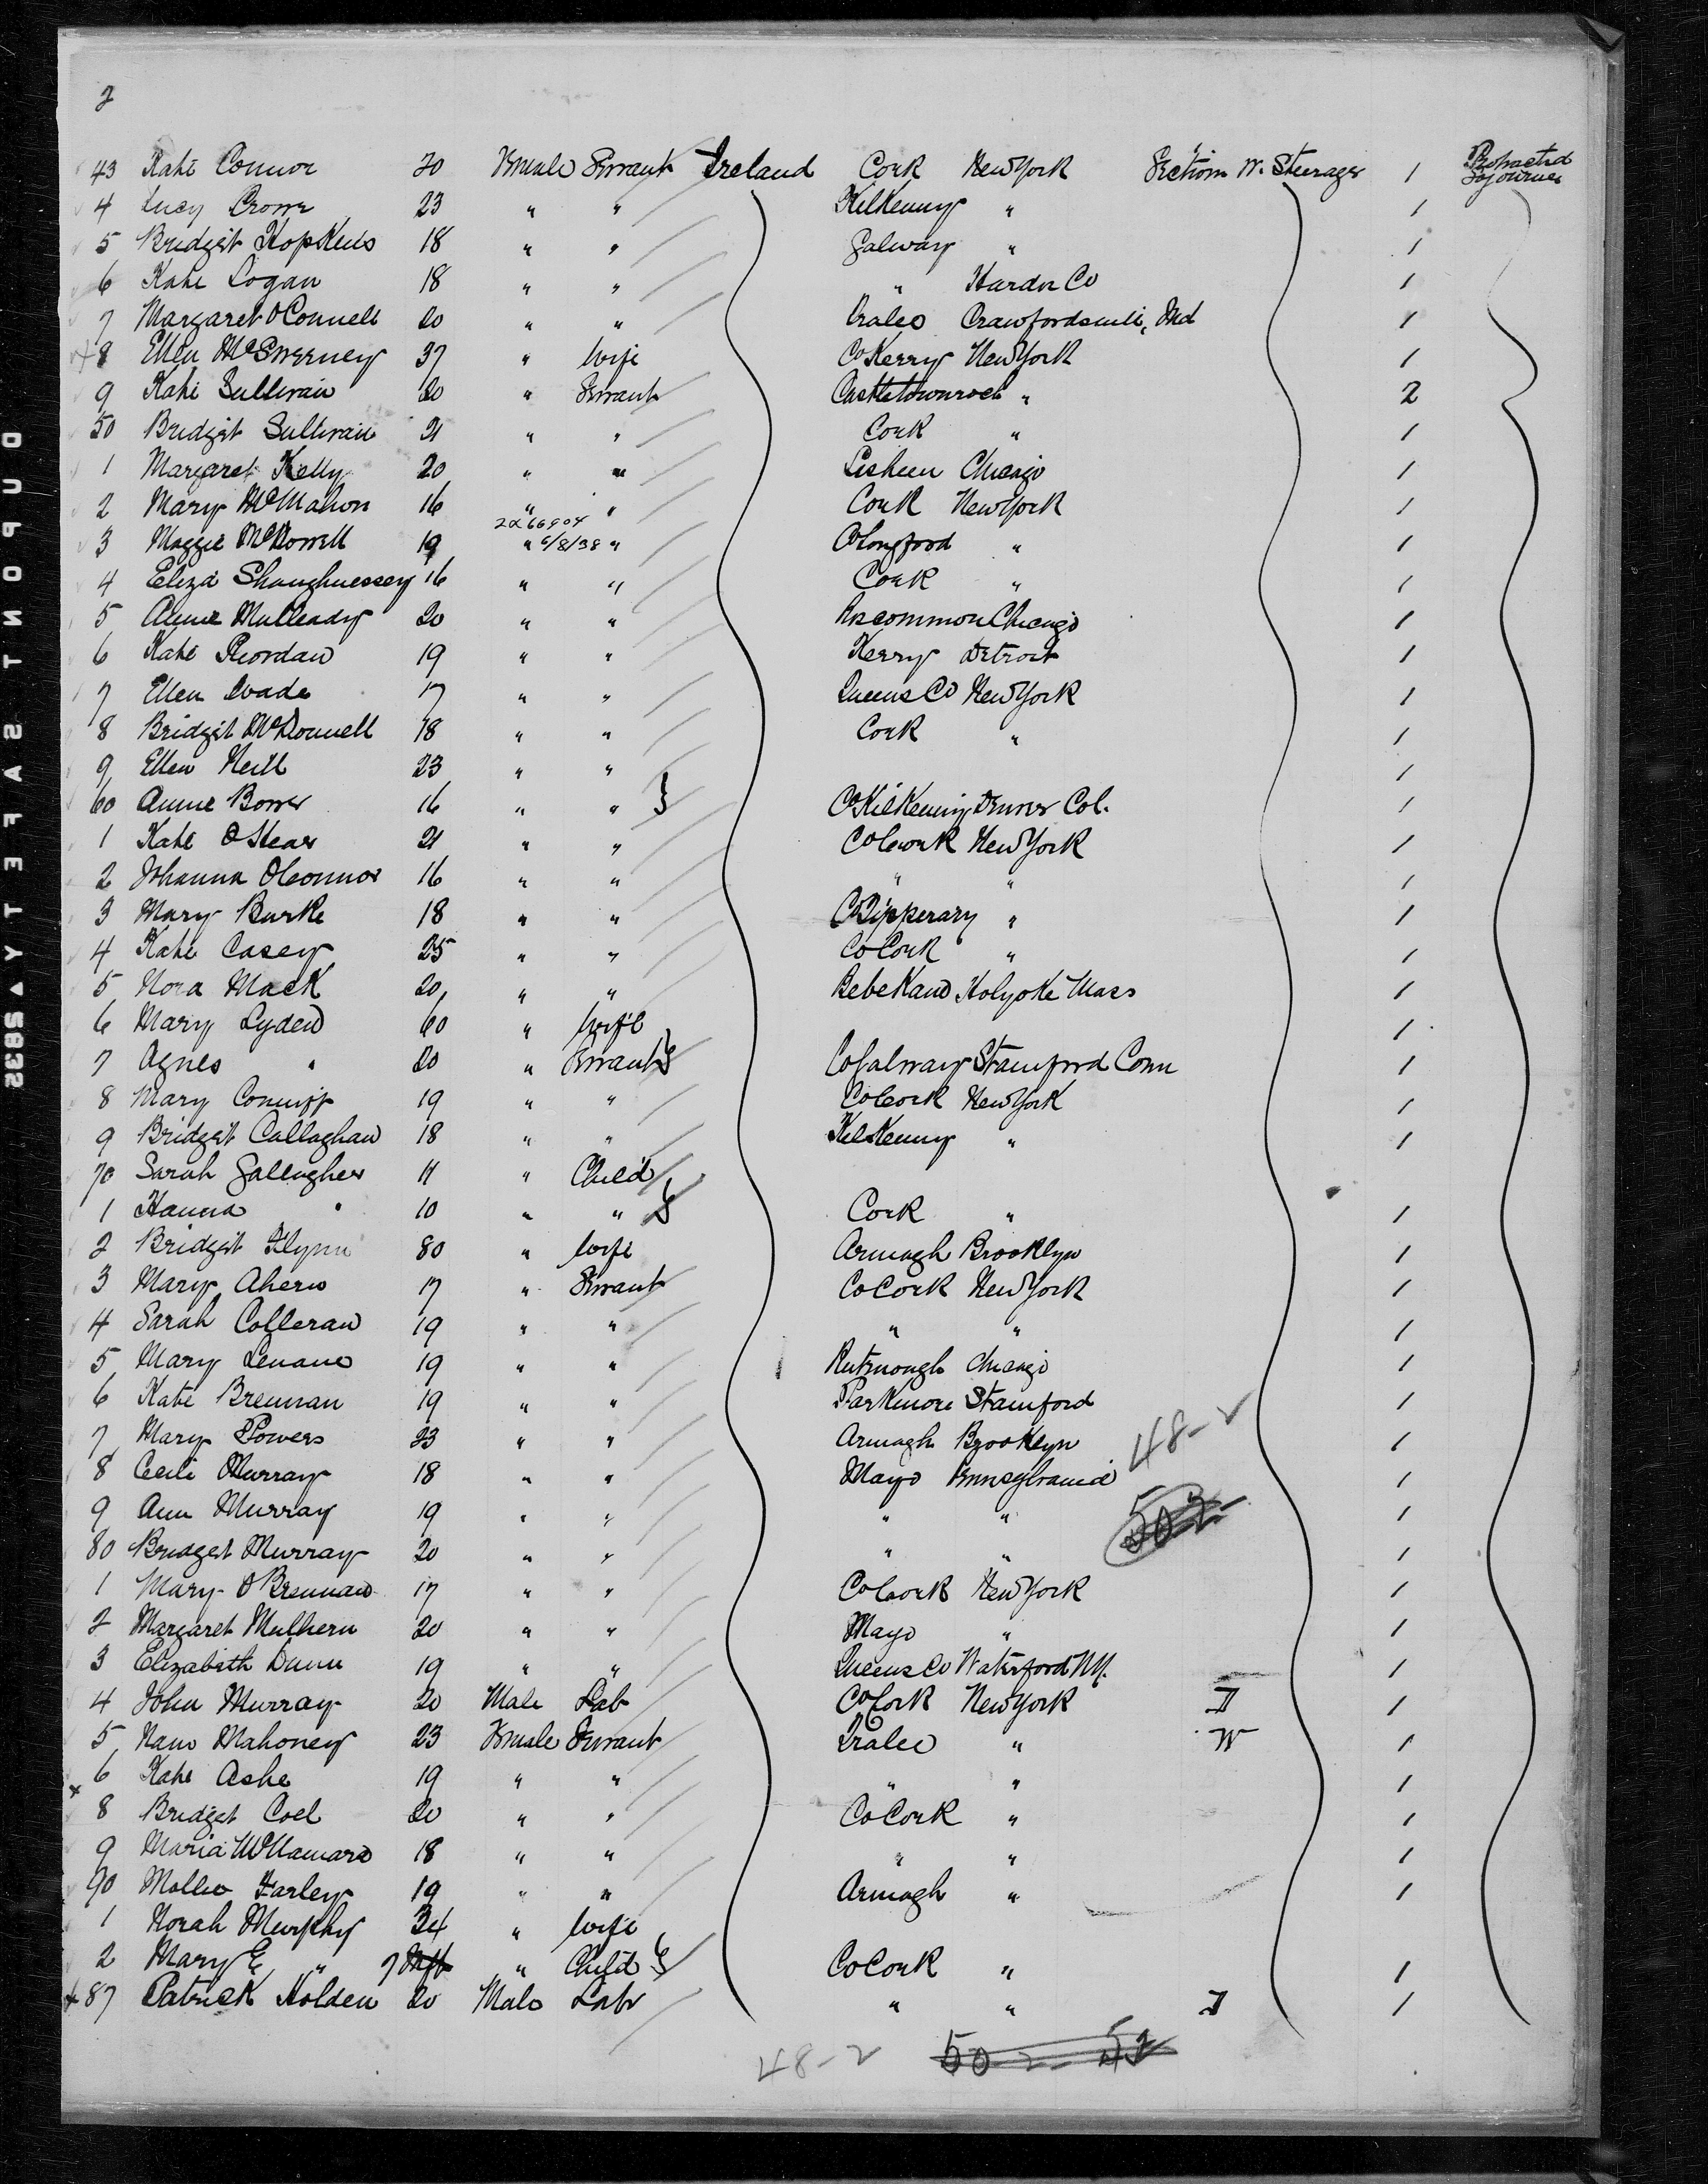 2
43 Kate Connor 20 Female Servant Ireland Cork New York Section W. Steerage 1 Protracted Sojourner
4 Lucy Crowe 23 " " Kilkenny " 1
5 Bridget Hopkins 18 " " Galway " 1
6 Kate Logan 18 " " " Hardin Co 1
7 Margaret O'Connell 20 " " Tralee Crawfordsville, Ind 1
8 Ellen McSweeney 37 " Wife Co Kerry New York 1
9 Kate Sullivan 20 " Servant Castletownroch " 2
50 Bridget Sullivan 21 " " Cork " 1
1 Margaret Kelly 20 " " Lisheen Chicago 1
2 Mary McMahon 16 " " Cork New York 1
2x66904
3 Maggie McDowell 19 " 6/8/38 " Co Longford " 1
4 Eliza Shaughnessey 16 " " Cork " 1
5 Annie Mulleady 20 " " Roscommon Chicago 1
6 Kate Riordan 19 " " Kerry Detroit 1
7 Ellen Wade 17 " " Queens Co New York 1
8 Bridget McDonnell 18 " " Cork " 1
9 Ellen Neill 23 " " 1
60 Annie Bower 16 " " Co Kilkenny Denver Col. 1
1 Kate O'Hear 21 " " Co Cork New York 1
2 Johanna O'Connor 16 " " " " 1
3 Mary Burke 18 " " Co Tipperary " 1
4 Kate Casey 25 " " Co Cork " 1
5 Nora Mack 20 " " Holyoke Mass 1
6 Mary Lyden 60 " Wife 1
7 Agnes " 20 " Servant Co Galway Stamford Conn 1
8 Mary Conniff 19 " " Co Cork New York 1
9 Bridget Callaghan 18 " " Kilkenny " 1
70 Sarah Gallagher 11 " Child
1 Hanna " 10 " " Cork " 1
2 Bridget Flynn 80 " Wife Armagh Brooklyn 1
3 Mary Ahern 17 " Servant Co Cork New York 1
4 Sarah Colleran 19 " " " " 1
5 Mary Lenane 19 " " Chicago 1
6 Kate Brennan 19 " " Parkmore Stamford 1
7 Mary Powers 23 " " Armagh Brooklyn 48-2 1
8 Celie Murray 18 " " Mayo Pennsylvania 1
9 Ann Murray 19 " " " " 50 2 1
80 Bridget Murray 20 " " " " 1
1 Mary O'Brennan 17 " " Co Cork New York 1
2 Margaret Mulhern 20 " " Mayo " 1
3 Elizabeth Dunn 19 " " Queens Co Waterford NY. 1
4 John Murray 20 Male Lab Co Cork New York I 1
5 Nano Mahoney 23 Female Servant Tralee " W 1
6 Kate Ashe 19 " " " " 1
8 Bridget Coel 20 " " Co Cork " 1
9 Maria McNamara 18 " " " " 1
90 Mollie Farley 19 " " Armagh " 1
1 Norah Murphy 34 " Wife
2 Mary E " 7 " Child Co Cork " 1
87 Patrick Holden 20 Male Labr " " I 1
48-2 50 - 2 - 52
DUPONT SAFETY 2853S